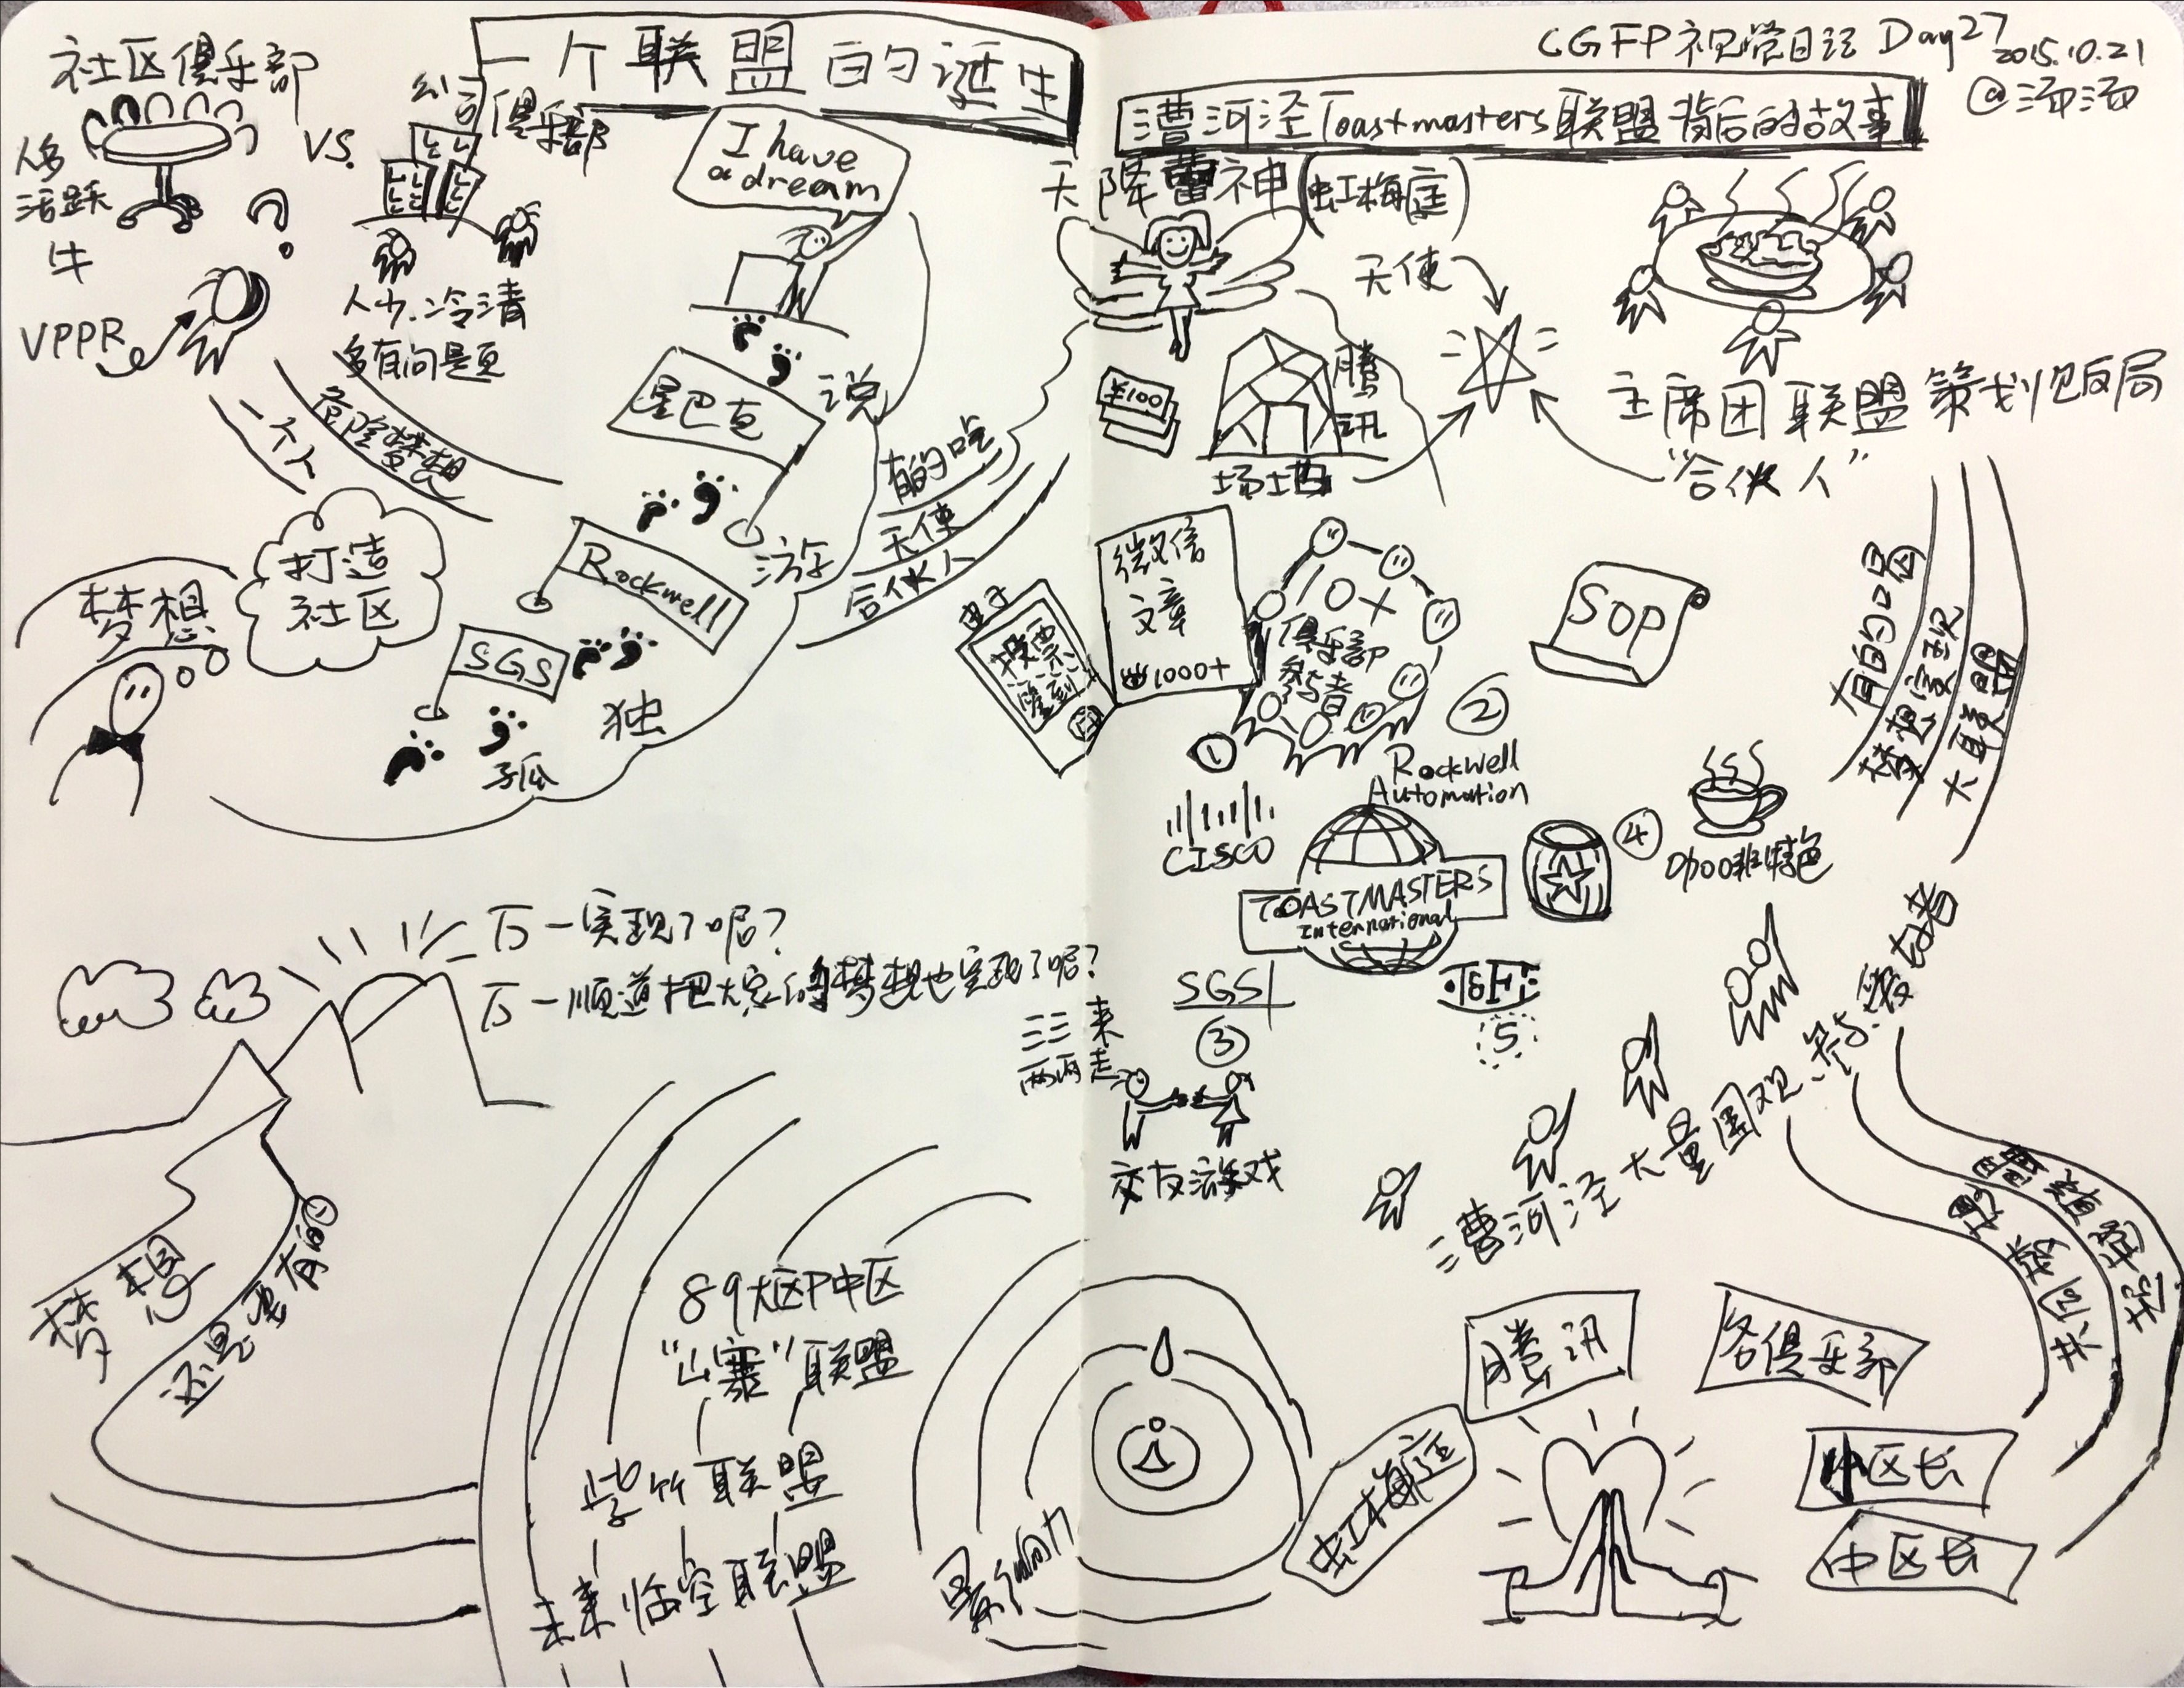 一个联盟的诞生
社区俱乐部
人多
活跃
牛
VS.
公司
俱乐部
人少.冷清
多有问题
VPPR
I have
a dream
一个人
危险梦想
梦想
打造
社区
星巴克
Rockwell
SGS
游学
孤
独
有的吃
天使
合伙人
万一实现了呢?
万一顺道把大家的梦想也实现了呢?
梦想
还是要有的
89大区P中区
"山寨"联盟
紫竹联盟
未来临空联盟
影响力
CGFP视觉日记 Day27
2015.10.21
@汤汤
漕河泾Toastmasters联盟背后的故事
天降曹神(虹梅庭)
天使
¥100
腾讯
场地
主席团联盟策划饭局
"合伙人"
电子
投票
签到
微信
文章
1000+
10+
俱乐部
参与者
SOP
有的口号
梦想实现
大联盟
①
②
CISCO
Rockwell
Automation
TOASTMASTERS
International
④
咖啡特色
SGS
③
5
三三来
两两走
交友游戏
漕河泾大量围观.参与者
腾讯
各俱乐部
虹梅庭
中区长
中区长